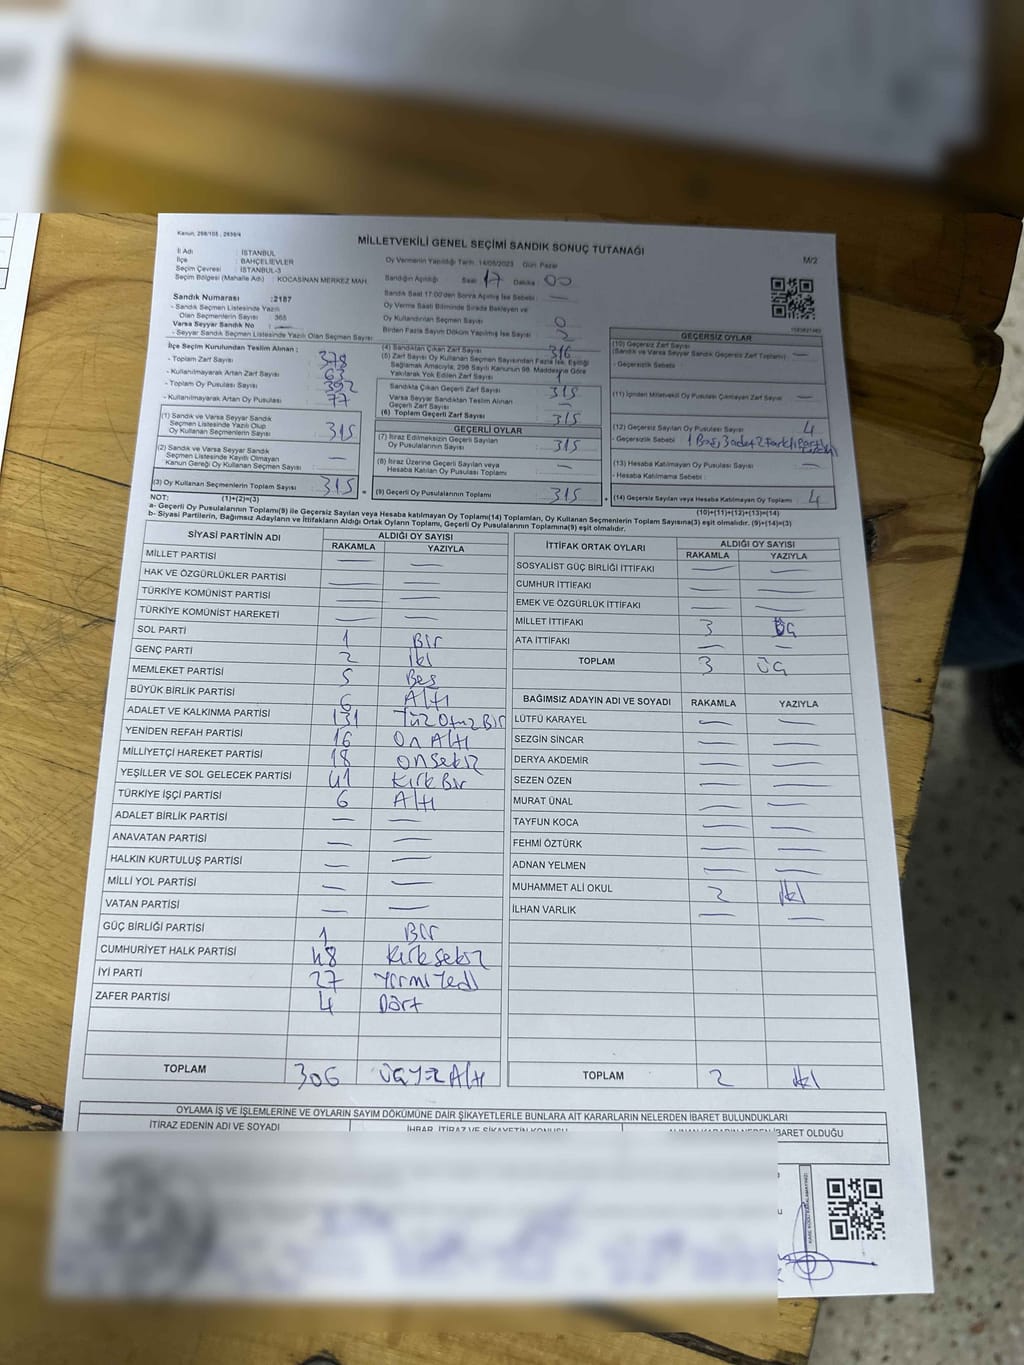 Kanun, 298/105 , 2839/4
MİLLETVEKİLİ GENEL SEÇİMİ SANDIK SONUÇ TUTANAĞI
M/2
İl Adı : İSTANBUL
İlçe : BAHÇELİEVLER
Seçim Çevresi : İSTANBUL-3
Seçim Bölgesi (Mahalle Adı) : KOCASİNAN MERKEZ MAH.
Oy Vermenin Yapıldığı Tarih: 14/05/2023 Gün: Pazar
Sandığın Açıldığı Saat 17 Dakika 00
Sandık Saat 17:00'den Sonra Açılmış İse Sebebi : —
Sandık Numarası : 2187
- Sandık Seçmen Listesinde Yazılı
Olan Seçmenlerin Sayısı 365
Varsa Seyyar Sandık No : —
- Seyyar Sandık Seçmen Listesinde Yazılı Olan Seçmen Sayısı
Oy Verme Saati Bitiminde Sırada Bekleyen ve
Oy Kullandırılan Seçmen Sayısı 0
Birden Fazla Sayım Döküm Yapılmış İse Sayısı
İlçe Seçim Kurulundan Teslim Alınan ;
- Toplam Zarf Sayısı 378
- Kullanılmayarak Artan Zarf Sayısı 63
- Toplam Oy Pusulası Sayısı 392
- Kullanılmayarak Artan Oy Pusulası 77
(1) Sandık ve Varsa Seyyar Sandık
Seçmen Listesinde Yazılı Olup
Oy Kullanan Seçmenlerin Sayısı 315
(2) Sandık ve Varsa Seyyar Sandık
Seçmen Listesinde Kayıtlı Olmayan
Kanun Gereği Oy Kullanan Seçmen Sayısı : —
(3) Oy Kullanan Seçmenlerin Toplam Sayısı 315
(4) Sandıktan Çıkan Zarf Sayısı 316
(5) Zarf Sayısı Oy Kullanan Seçmen Sayısından Fazla İse, Eşitliği
Sağlamak Amacıyla, 298 Sayılı Kanunun 98. Maddesine Göre
Yakılarak Yok Edilen Zarf Sayısı 1
Sandıkta Çıkan Geçerli Zarf Sayısı 315
Varsa Seyyar Sandıktan Teslim Alınan
Geçerli Zarf Sayısı —
(6) Toplam Geçerli Zarf Sayısı 315
GEÇERLİ OYLAR
(7) İtiraz Edilmeksizin Geçerli Sayılan
Oy Pusulalarının Sayısı 315
(8) İtiraz Üzerine Geçerli Sayılan veya
Hesaba Katılan Oy Pusulası Toplamı —
(9) Geçerli Oy Pusulalarının Toplamı 315
GEÇERSİZ OYLAR
(10) Geçersiz Zarf Sayısı
(Sandık ve Varsa Seyyar Sandık Geçersiz Zarf Toplamı) —
- Geçersizlik Sebebi
(11) İçinden Milletvekili Oy Pusulası Çıkmayan Zarf Sayısı —
(12) Geçersiz Sayılan Oy Pusulası Sayısı 4
- Geçersizlik Sebebi 1 Boş, 3 adet 2 farklı
(13) Hesaba Katılmayan Oy Pusulası Sayısı —
- Hesaba Katılmama Sebebi :
(14) Geçersiz Sayılan veya Hesaba Katılmayan Oy Toplamı 4
NOT: (1)+(2)=(3)
(10)+(11)+(12)+(13)=(14)
a- Geçerli Oy Pusulalarının Toplamı(9) ile Geçersiz Sayılan veya Hesaba katılmayan Oy Toplamı(14) Toplamları, Oy Kullanan Seçmenlerin Toplam Sayısına(3) eşit olmalıdır. (9)+(14)=(3)
b- Siyasi Partilerin, Bağımsız Adayların ve İttifakların Aldığı Ortak Oyların Toplamı, Geçerli Oy Pusulalarının Toplamına(9) eşit olmalıdır.
SİYASİ PARTİNİN ADI ALDIĞI OY SAYISI
RAKAMLA YAZIYLA
MİLLET PARTİSİ — —
HAK VE ÖZGÜRLÜKLER PARTİSİ — —
TÜRKİYE KOMÜNİST PARTİSİ — —
TÜRKİYE KOMÜNİST HAREKETİ — —
SOL PARTİ 1 Bir
GENÇ PARTİ 2 iki
MEMLEKET PARTİSİ 5 Beş
BÜYÜK BİRLİK PARTİSİ 6 Altı
ADALET VE KALKINMA PARTİSİ 131 Yüz Otuz Bir
YENİDEN REFAH PARTİSİ 16 On Altı
MİLLİYETÇİ HAREKET PARTİSİ 18 onsekiz
YEŞİLLER VE SOL GELECEK PARTİSİ 41 Kırk Bir
TÜRKİYE İŞÇİ PARTİSİ 6 Altı
ADALET BİRLİK PARTİSİ — —
ANAVATAN PARTİSİ — —
HALKIN KURTULUŞ PARTİSİ — —
MİLLİ YOL PARTİSİ — —
VATAN PARTİSİ — —
GÜÇ BİRLİĞİ PARTİSİ 1 Bir
CUMHURİYET HALK PARTİSİ 48 Kırk sekiz
İYİ PARTİ 27 Yirmi Yedi
ZAFER PARTİSİ 4 Dört
TOPLAM 306 üç yüz Altı
İTTİFAK ORTAK OYLARI ALDIĞI OY SAYISI
RAKAMLA YAZIYLA
SOSYALİST GÜÇ BİRLİĞİ İTTİFAKI — —
CUMHUR İTTİFAKI — —
EMEK VE ÖZGÜRLÜK İTTİFAKI — —
MİLLET İTTİFAKI 3 üç
ATA İTTİFAKI — —
TOPLAM 3 üç
BAĞIMSIZ ADAYIN ADI VE SOYADI RAKAMLA YAZIYLA
LÜTFÜ KARAYEL — —
SEZGİN SİNCAR — —
DERYA AKDEMİR — —
SEZEN ÖZEN — —
MURAT ÜNAL — —
TAYFUN KOCA — —
FEHMİ ÖZTÜRK — —
ADNAN YELMEN — —
MUHAMMET ALİ OKUL 2 iki
İLHAN VARLIK — —
TOPLAM 2 iki
OYLAMA İŞ VE İŞLEMLERİNE VE OYLARIN SAYIM DÖKÜMÜNE DAİR ŞİKAYETLERLE BUNLARA AİT KARARLARIN NELERDEN İBARET BULUNDUKLARI
İTİRAZ EDENİN ADI VE SOYADI İHBAR, İTİRAZ VE ŞİKAYETİN KONUSU ALINAN KARARIN NEDEN İBARET OLDUĞU